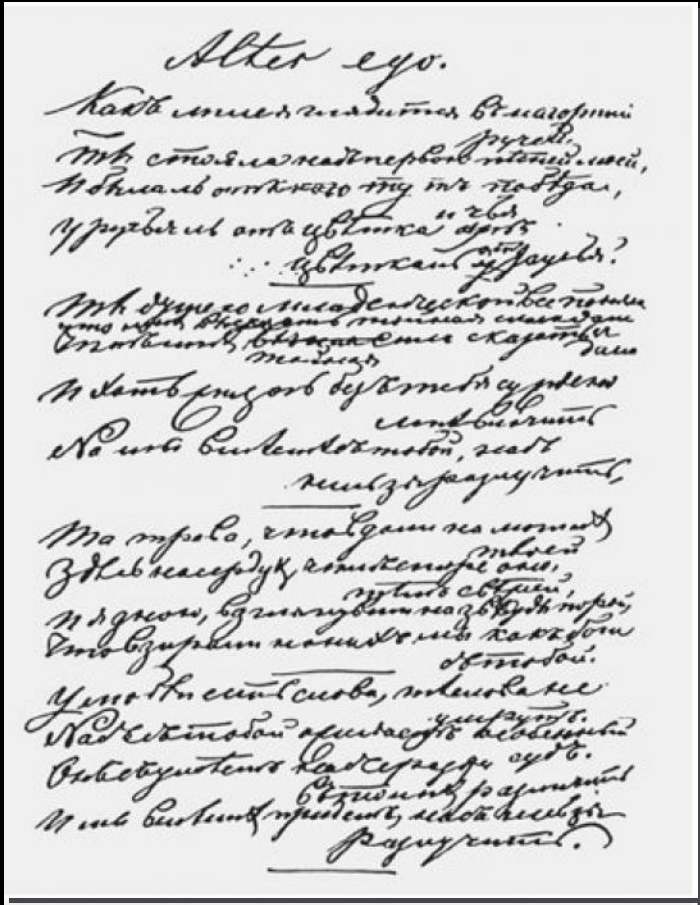 Alter ego.
Какъ лилея глядится въ нагорный
ручей,
Ты стояла надъ первою пѣсней моей,
И была ль побѣда,
У ручья ль отъ цвѣтка и чья
цвѣтка ль отъ ручья?
Ты душою младенческой все поняла
Что мнѣ высказать тайная сила
дала
тайная
И хоть жизнь безъ тебя суждено
мнѣ влачить
Но мы вмѣстѣ съ тобой, насъ
нельзя разлучить,
Та трава, что вдали на могилѣ
твоей
Здѣсь на сердцѣ, чѣмъ старе оно,
тѣмъ свѣжей,
И я знаю, взглянувши на звѣзды порой,
Что взирали на нихъ мы какъ боги
съ тобой.
У любви есть слова, тѣ слова не
умрутъ.
Насъ съ тобой ожидаетъ особенный
судъ.
Онъ съумѣетъ насъ сразу
въ толпѣ различить
И мы вмѣстѣ придемъ, насъ нельзя
разлучить.